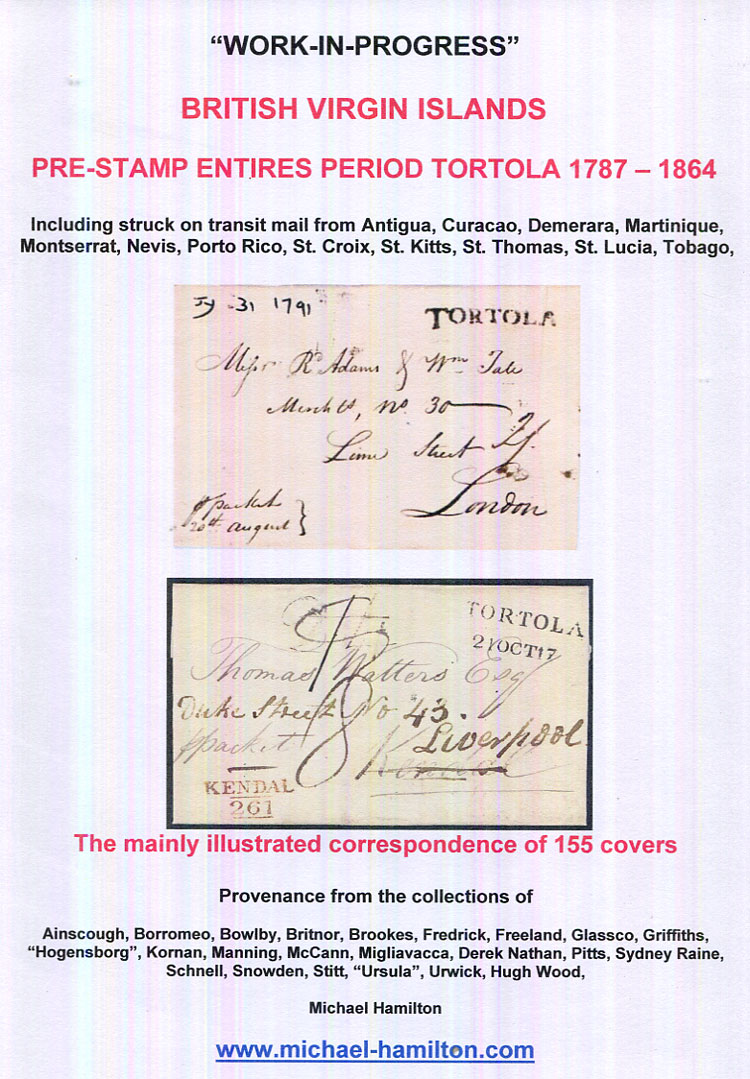 “WORK-IN-PROGRESS”
BRITISH VIRGIN ISLANDS
PRE-STAMP ENTIRES PERIOD TORTOLA 1787 – 1864
Including struck on transit mail from Antigua, Curacao, Demerara, Martinique,
Montserrat, Nevis, Porto Rico, St. Croix, St. Kitts, St. Thomas, St. Lucia, Tobago,
Jy 31 1791
TORTOLA
Messrs Rd Adams & Wm Tate
Merchts, No 30
Lime Street
2/.
London
packet
20th August
TORTOLA
21OCT17
Thomas Watters Esq
Duke Street No 43.
Liverpool
packet
Kendal
KENDAL
261
The mainly illustrated correspondence of 155 covers
Provenance from the collections of
Ainscough, Borromeo, Bowlby, Britnor, Brookes, Fredrick, Freeland, Glassco, Griffiths,
“Hogensborg”, Kornan, Manning, McCann, Migliavacca, Derek Nathan, Pitts, Sydney Raine,
Schnell, Snowden, Stitt, “Ursula”, Urwick, Hugh Wood,
Michael Hamilton
www.michael-hamilton.com